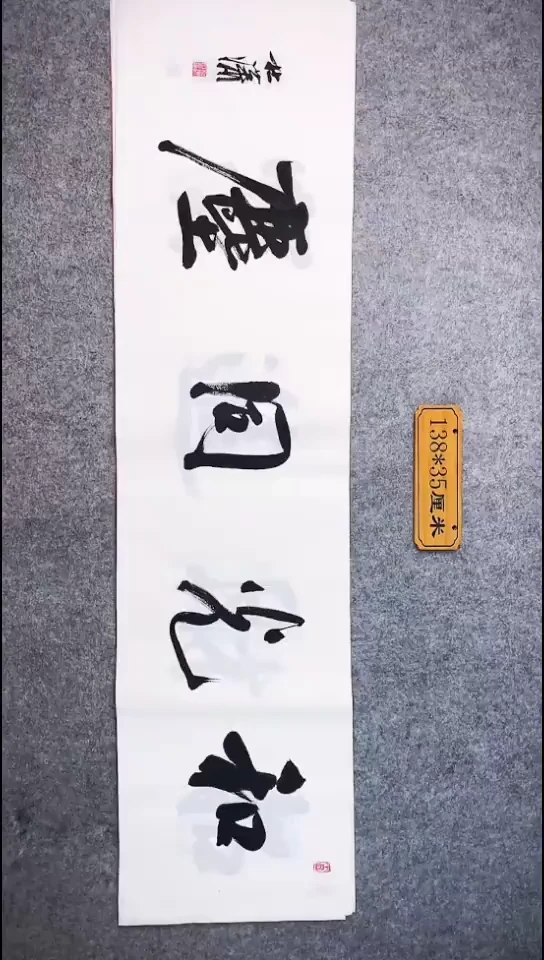 和光同塵
138*35厘米